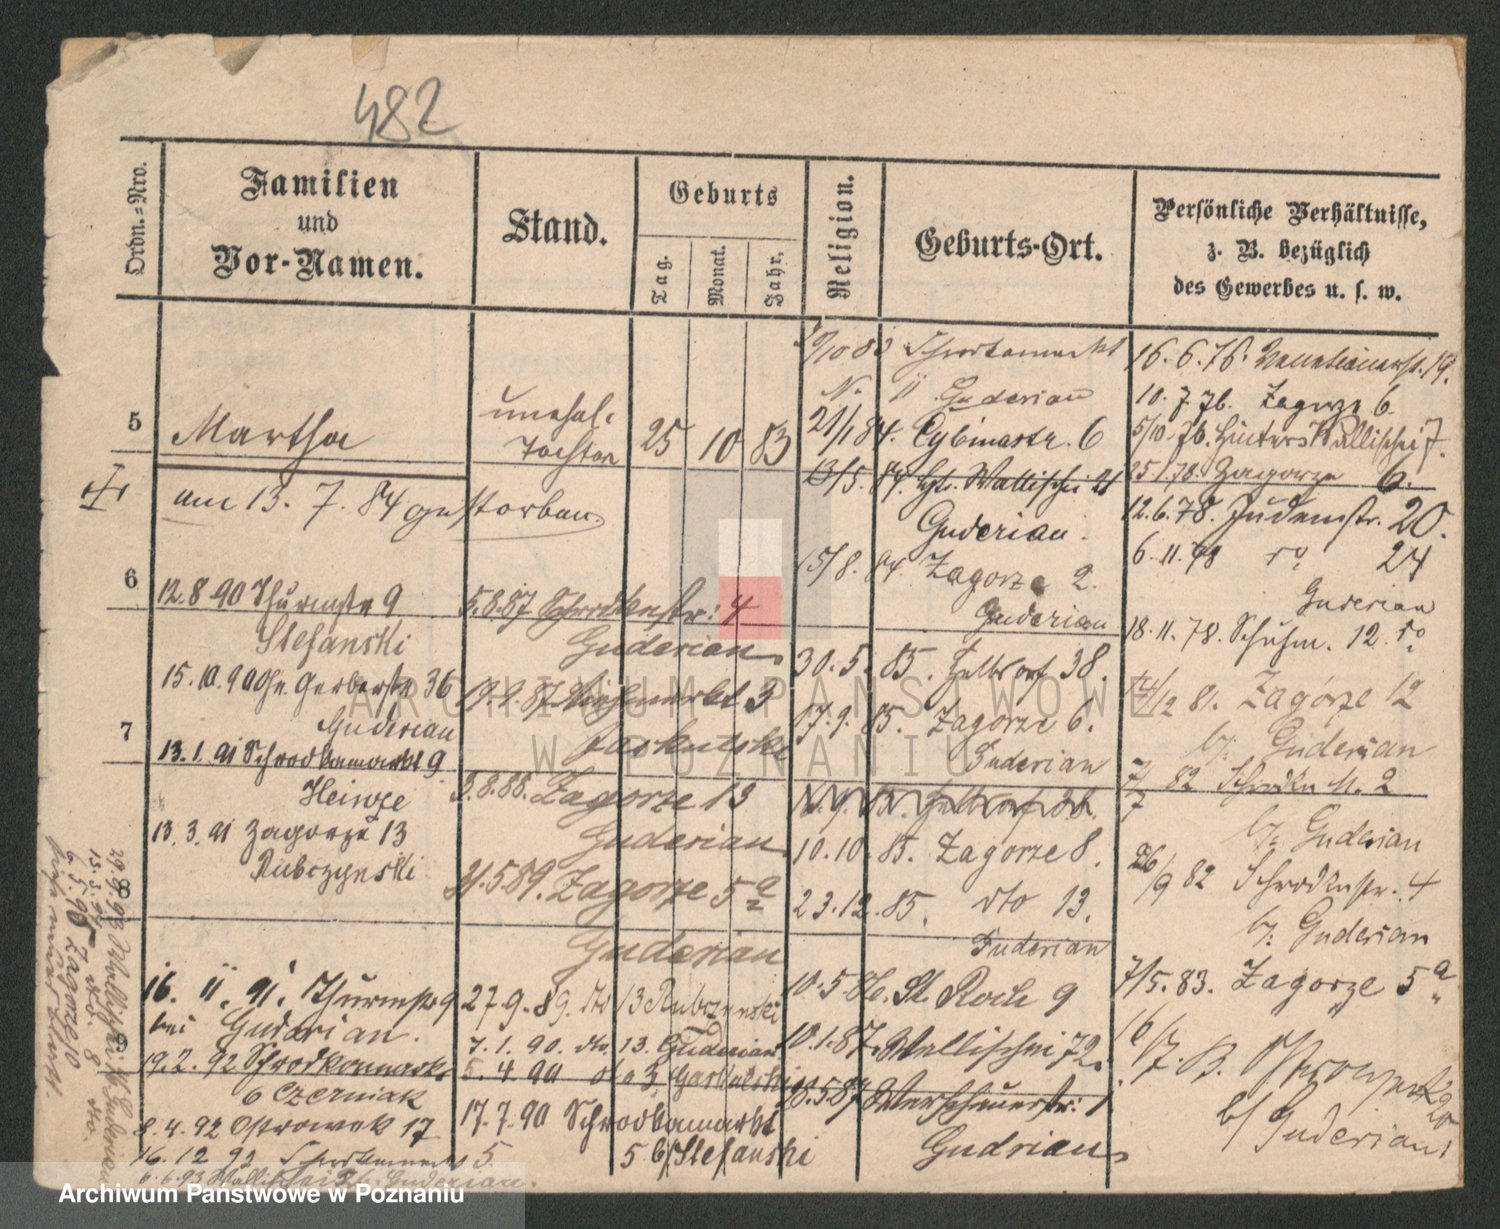 482
Ordn.=Nro.
Familien
und
Vor-Namen.
Stand.
Geburts
Tag.
Monat.
Jahr.
Religion.
Geburts-Ort.
Persönliche Verhältnisse,
z. B. bezüglich
des Gewerbes u. s. w.
5
Martha
unehel.
Tochter
25 10 83
am 13. 7. 84 gestorben
6
12.8.90 Thurmstr 9
Stefanski
15.10.90 Gr. Gerberstr 36
Guderian
7
13.1.91 Schrodkamarkt 9
Heinze
13.3.91 Zagorze 13
Rubrzynski
16. 11. 91. Thurmstr 9
bei Guderian.
19.2.92 Schrodkamarkt
6 Czerniak
8.4.92 Ostrowek 17
16.12 92 Schrodkamarkt 5
6.6.93 Wallischei Guderian
5.8.87 Schrodkastr: 4
Guderian
19.9.87 Viehmarkt 3
3.8.88. Zagorze 13
Guderian
21.5.89. Zagorze 5a
Guderian
27.9.89. dto 13 Rubrzynski
7.1.90. dto 13. Guderian
5.4.90 dto 3
17.7.90 Schrodkamarkt
5 b/ Stefanski
Schrodkamarkt
N. 11 Guderian
21/1 84. Cybinastr. 6
13/5. 84. Wallischei 21
Guderian.
15/8. 84. Zagorze 2.
Guderian
30.5. 85. 38.
17.9. 85. Zagorze 6.
Guderian
10.10. 85. Zagorze 8.
23.12.85. dto 13.
Guderian
10.5 86. St. Roch 9
10.1.87. Wallischei 72.
18.5 87 1
Gudrian
16.6.76. Venetianerstr. 19.
10.7.76. Zagorze 6
5/10.76. Hinter Wallischei 7.
25 1.78. Zagorze 6.
12.6.78. Judenstr. 20.
6.11.78 ro 24
Guderian
18.11.78. Schuhm. 12 ro
14/12 81. Zagórze 12
b/: Guderian
7/7 82 Schrodka M. 2
b/: Guderian
26/9 82 Schrodkastr. 4
b/: Guderian
7/5.83. Zagorze 5a
16/7. 83. Ostrowek
b/ Guderian
ARCHIWUM PAŃSTWOWE
W POZNANIU
Archiwum Państwowe w Poznaniu